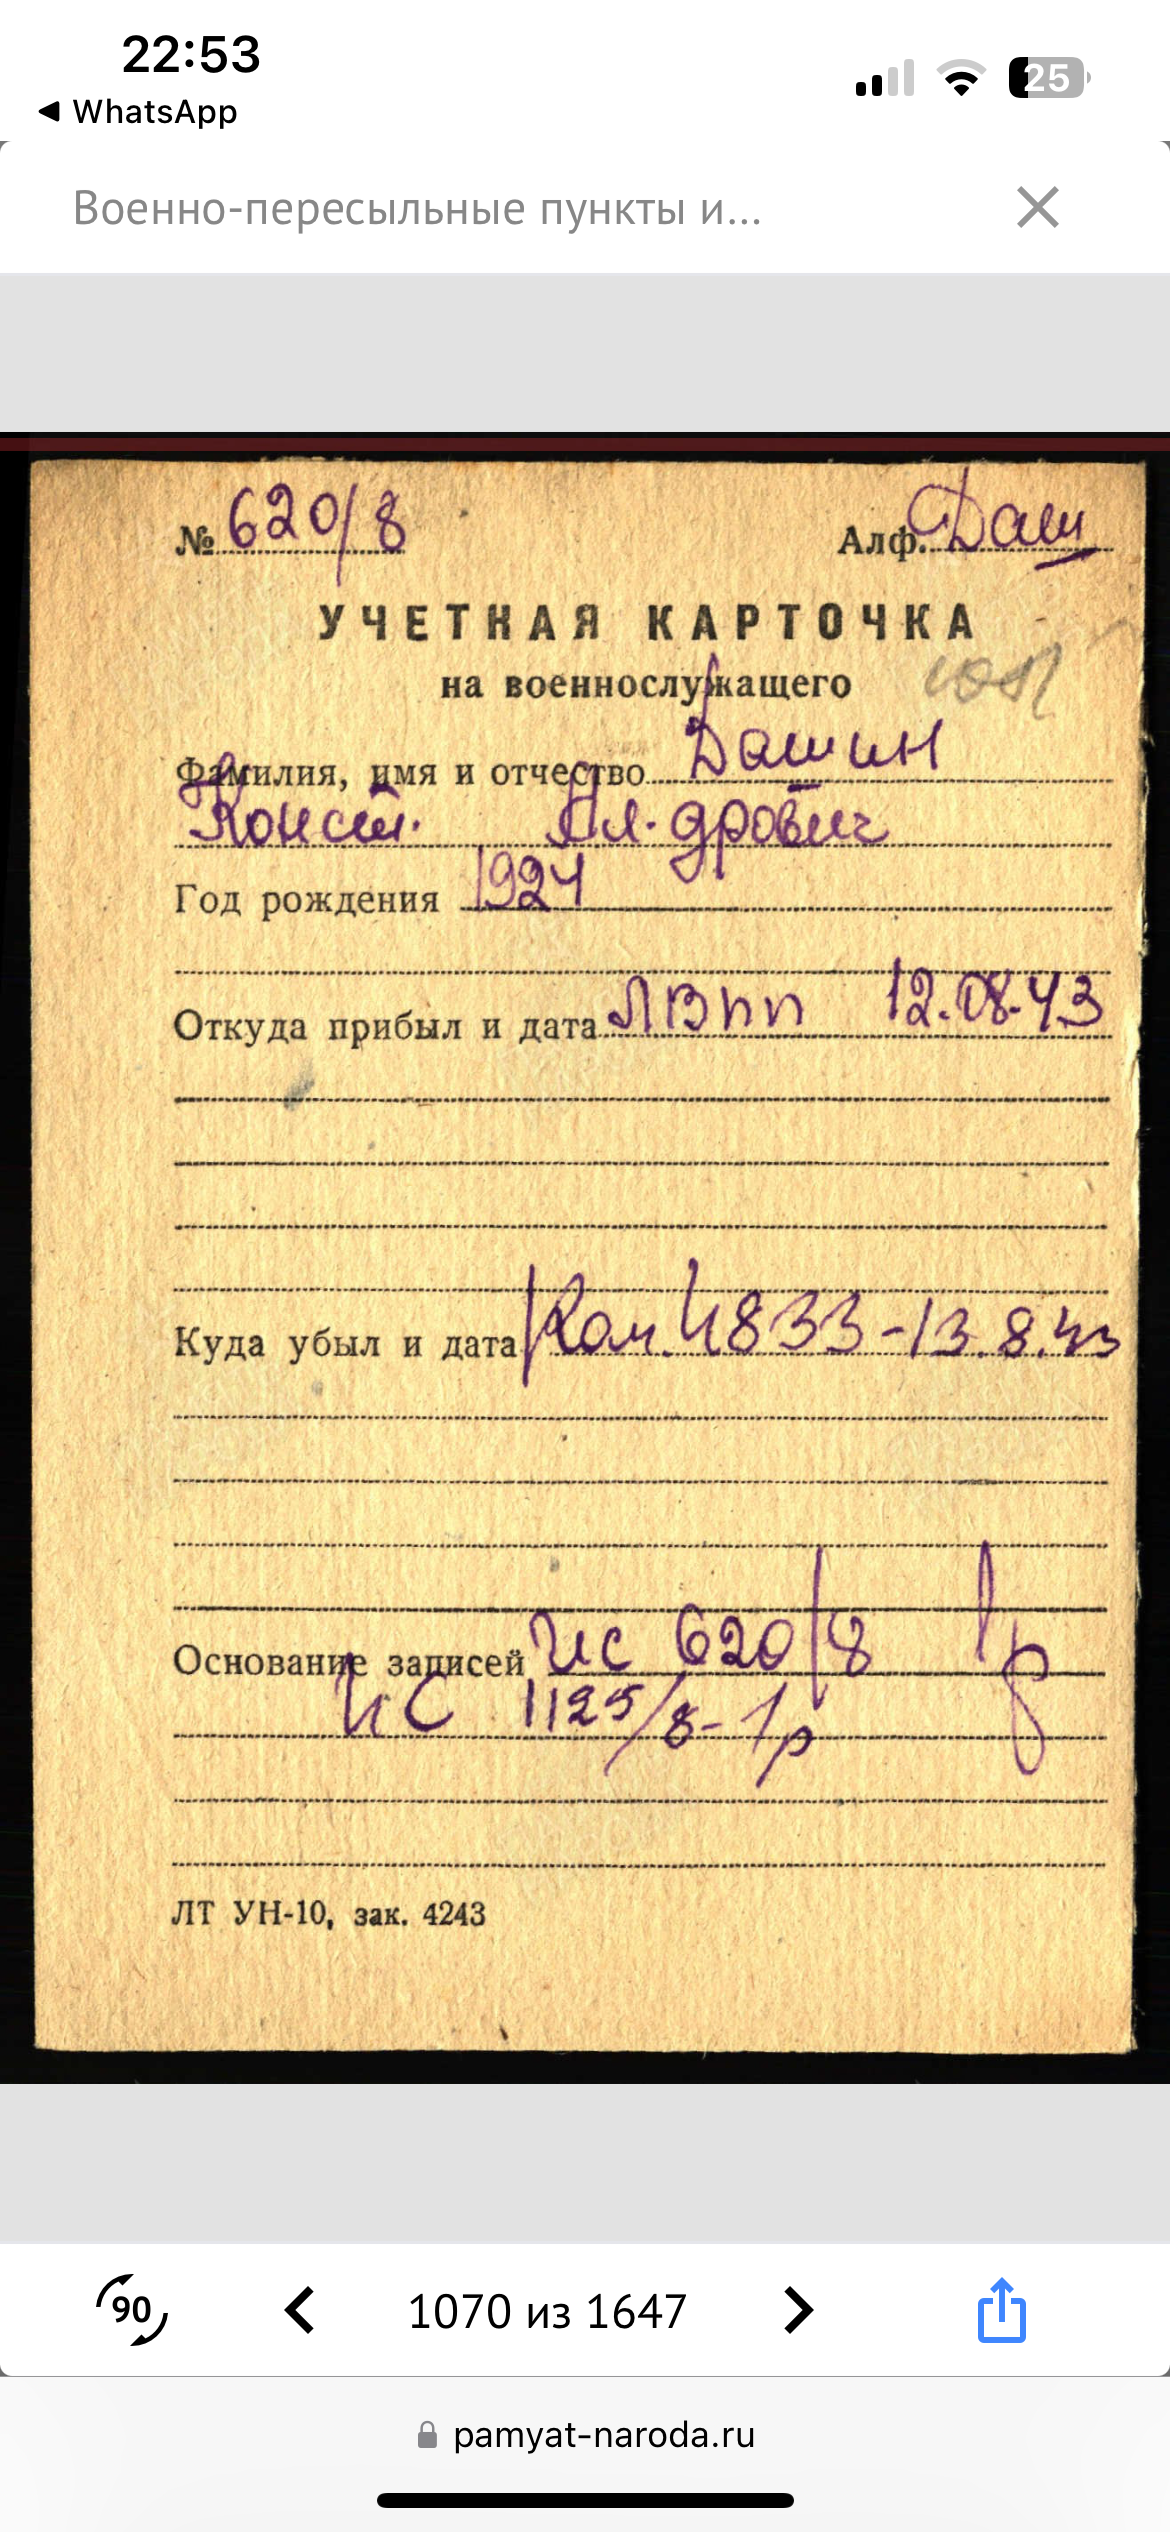 22:53
25
WhatsApp
Военно-пересыльные пункты и...
№ 620/8 Алф. Даш
УЧЕТНАЯ КАРТОЧКА
на военнослужащего
Фамилия, имя и отчество Дашин
Конст. Ал.дрович
Год рождения 1924
Откуда прибыл и дата ЛВпп 12.08.43
Куда убыл и дата Ком. 4833-13.8.43
Основание записей ис 620/8 1р
ИС 1125/8-1р
ЛТ УН-10, зак. 4243
90 1070 из 1647
pamyat-naroda.ru